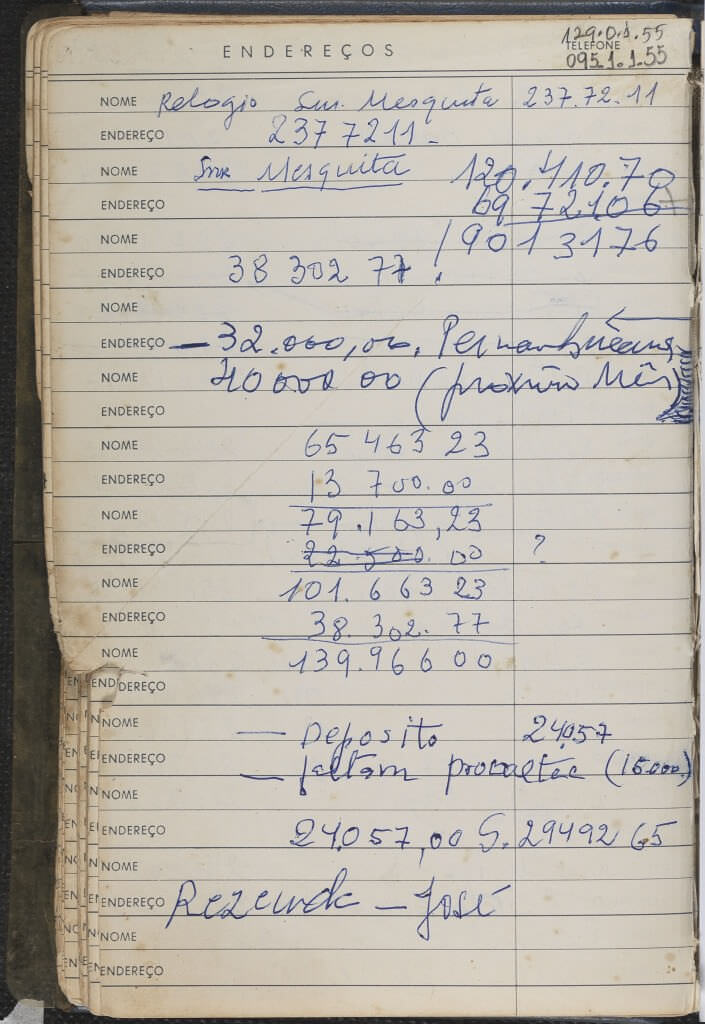 ENDEREÇOS
129.0.1.55
TELEFONE
095.1.1.55
NOME Relogio Snr. Mesquita 237.72.11
ENDEREÇO 237 7211 -
NOME Snr Mesquita 120.410.70
ENDEREÇO 69 721.06
NOME 190 13176
ENDEREÇO 38 302 77 !
NOME
ENDEREÇO - 32.000,00. Pernambucanas
NOME 40 000 00 (próximo Mês)
ENDEREÇO
NOME 65 463 23
ENDEREÇO 13 700.00
NOME 79.163,23
ENDEREÇO 22.500.00 ?
NOME 101.663 23
ENDEREÇO 38.302.77
NOME 139.966 00
ENDEREÇO
NOME — Deposito 24.057
ENDEREÇO — faltam (15.000.)
NOME
ENDEREÇO 24.057,00 S. 29492 65
NOME
ENDEREÇO Rezende — José
NOME
ENDEREÇO